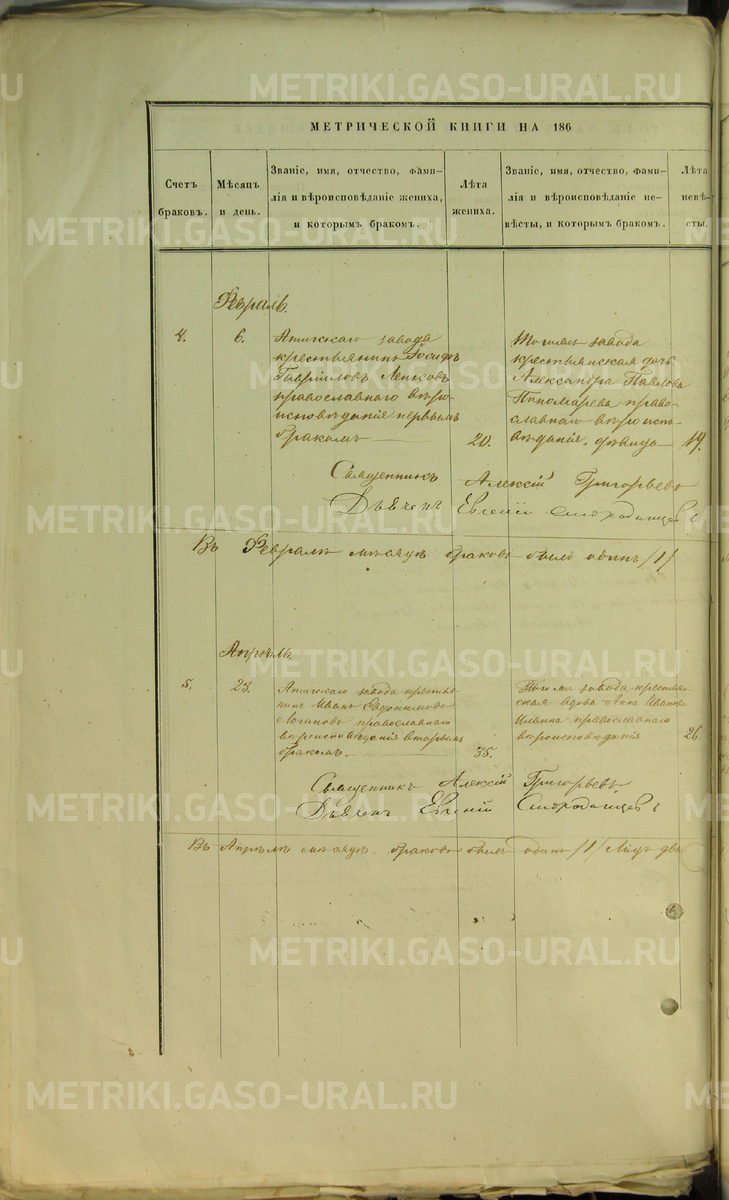 METRIKI.GASO-URAL.RU
МЕТРИЧЕСКОЙ КНИГИ НА 186
Счетъ браковъ.
Мѣсяцъ и день.
Званіе, имя, отчество, фами-
лія и вѣроисповѣданіе жениха,
и которымъ бракомъ.
Лѣта жениха.
Званіе, имя, отчество, фами-
лія и вѣроисповѣданіе не-
вѣсты, и которымъ бракомъ.
Лѣта невѣ-
сты.
Февраль.
4.
6.
Атигскаго завода
крестьянинъ Іосифъ
Гавріиловъ
православнаго вѣро
исповѣданія первымъ
бракомъ
20.
Тогоже завода
крестьянская дочь
Александра Павлова
Пономарева право-
славнаго вѣроиспо-
вѣданія, дѣвица
19.
Священникъ Алексій Григорьевъ
Дьячекъ Евгеній Смородинцевъ
Въ Февралѣ мѣсяцѣ браковъ было одинъ /1/
Апрѣль.
5.
25.
Атигскаго завода крестья-
нинъ Иванъ Евдокимовъ
Логиновъ православнаго
вѣроисповѣданія вторымъ
бракомъ
35.
Тогоже завода крестьян-
ская вдова Анна Иванова
православнаго
вѣроисповѣданія
26.
Священникъ Алексій Григорьевъ
Дьячекъ Евгеній Смородинцевъ
Въ Апрѣлѣ мѣсяцѣ браковъ былъ одинъ /1/ Лицъ два